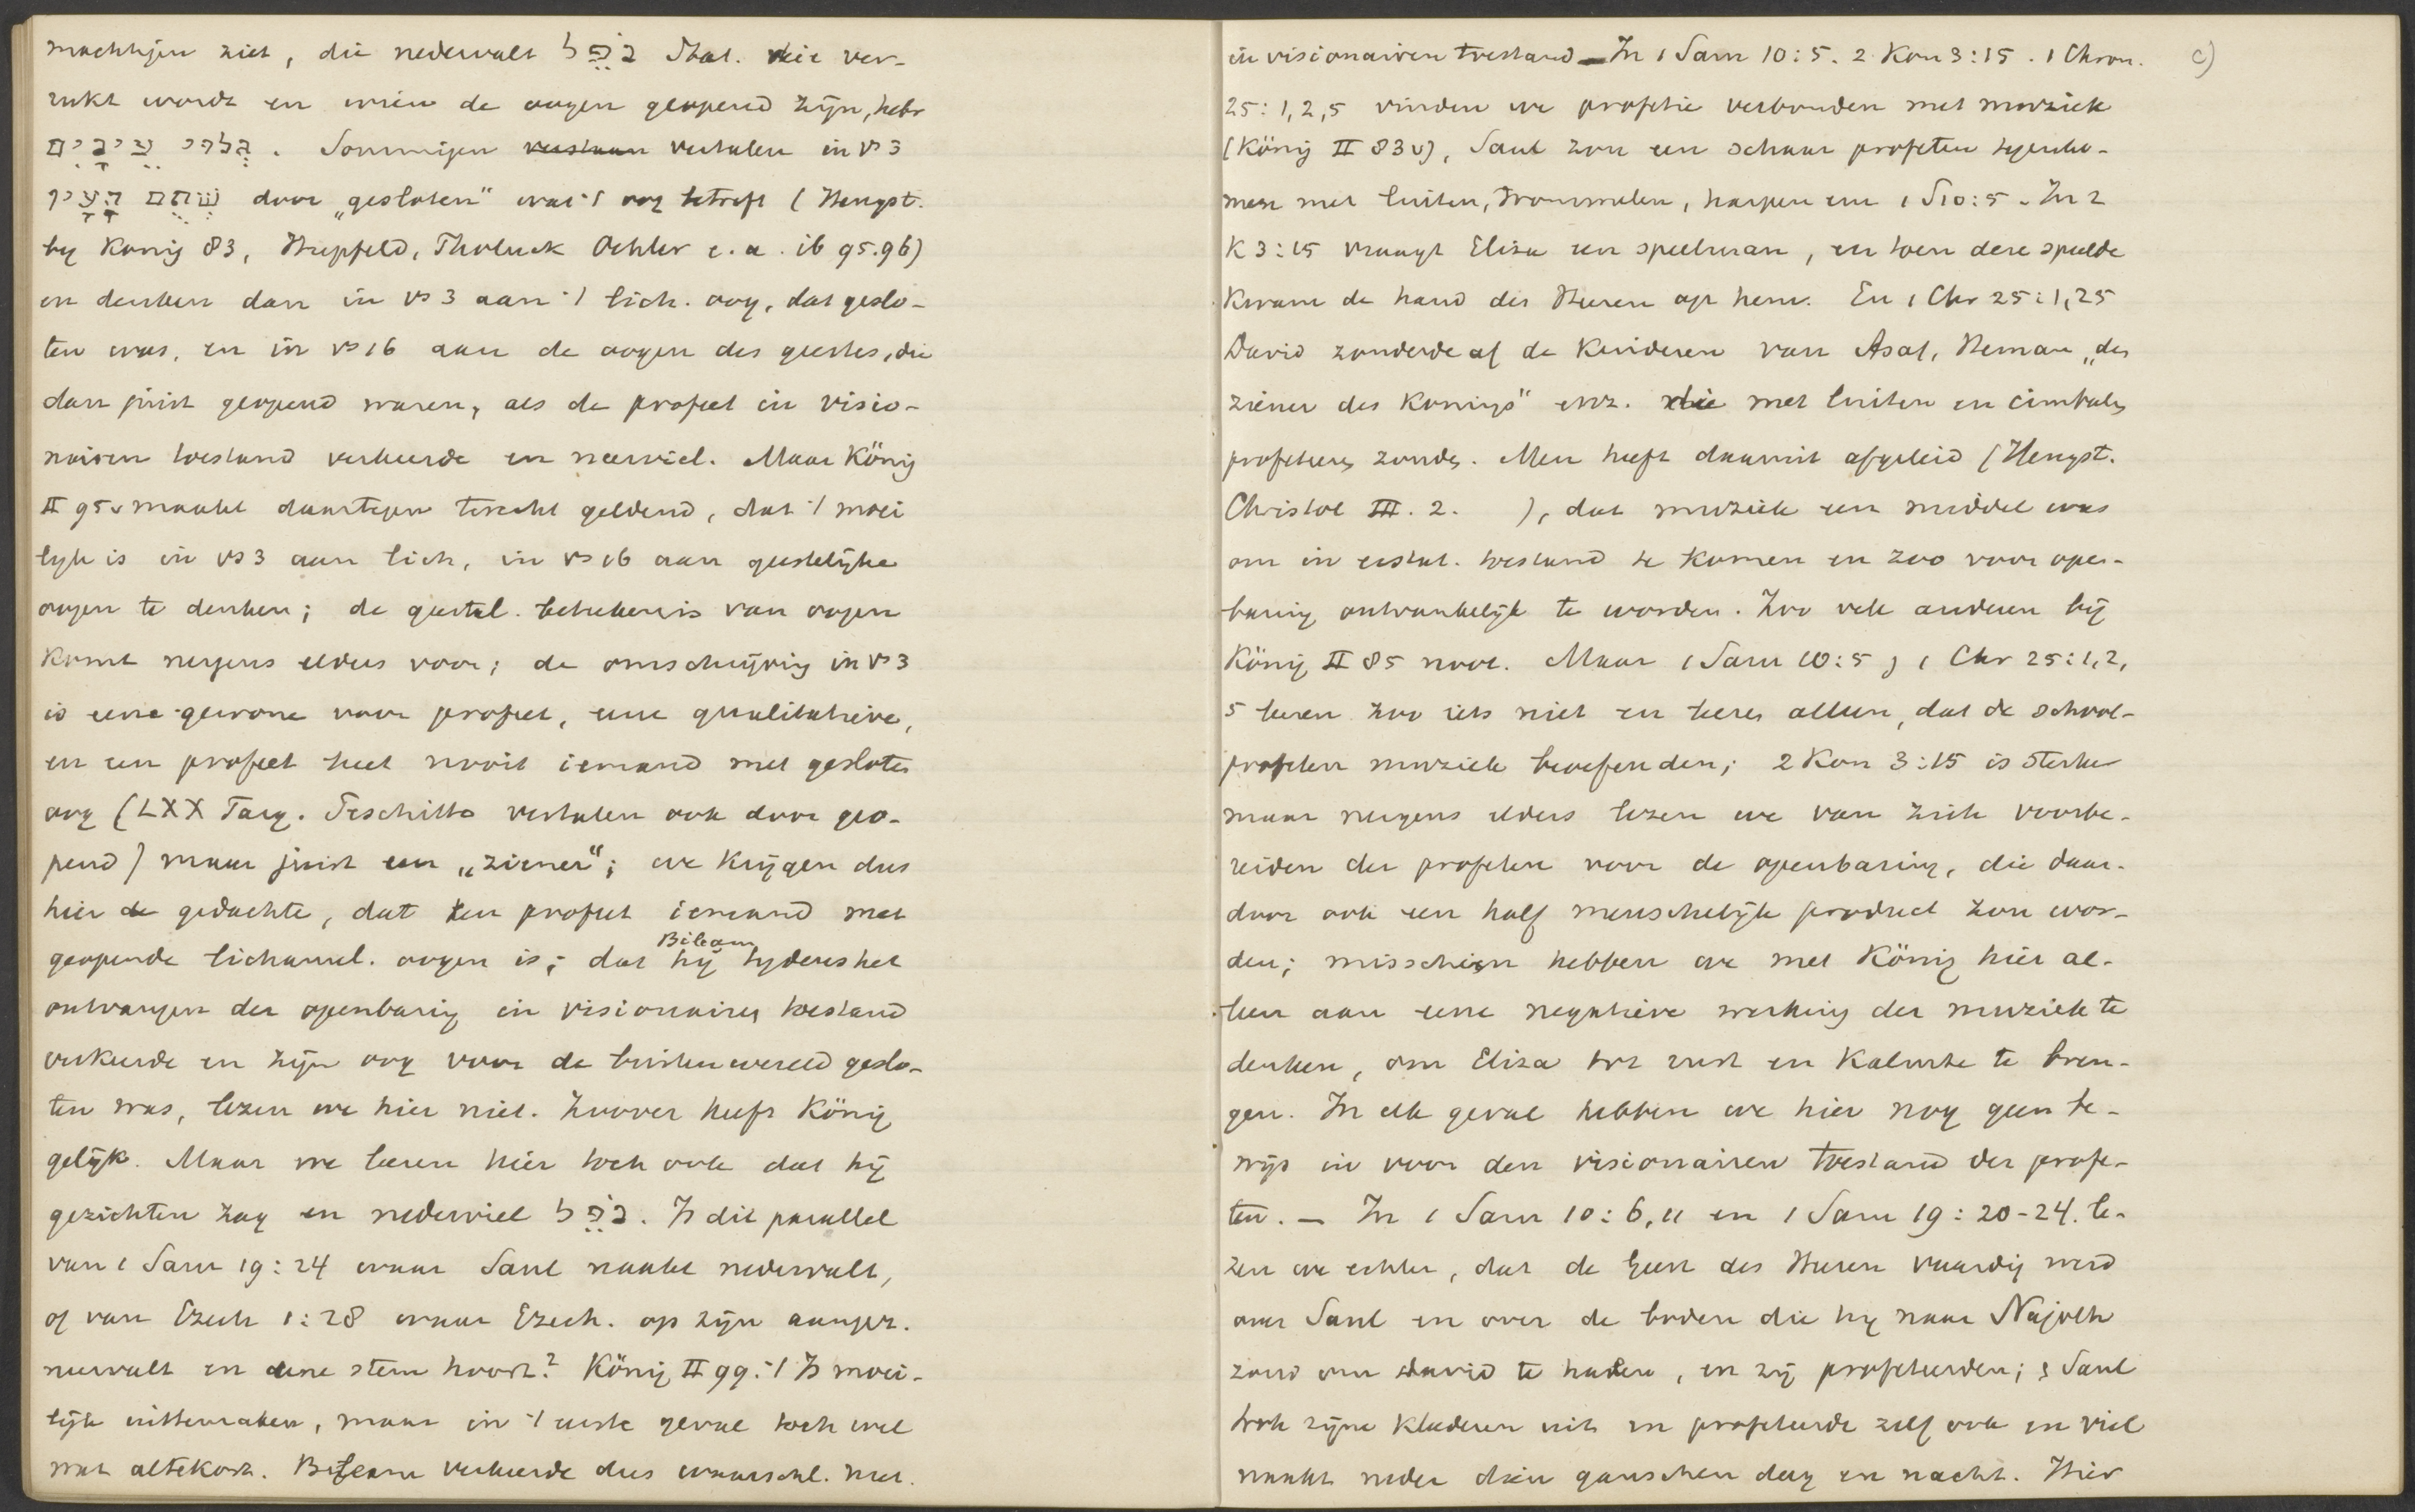 machtigen ziet, die nedervalt נֹפֵל Stat. die ver-
rukt wordt en wien de oogen geopend zijn, hebr
גלוי עינים. Sommigen verstaan vertalen in vs 3
שתם העין door „gesloten" wat 't oog betreft (Hengst.
by König 83, Hupfeld, Tholuck Oehler e.a. ib 95.96)
en denken dan in vs 3 aan 't lich. oog, dat geslo-
ten was, en in vs 16 aan de oogen des geestes, die
dan juist geopend waren, als de profeet in visio-
nairen toestand verkeerde en neerviel. Maar König
II 95v maakt daartegen terecht geldend, dat 't moei
lyk is in vs 3 aan lich, in vs 16 aan geestelijke
oogen te denken; de geestel. beteekenis van oogen
komt nergens elders voor; de omschrijving in vs 3
is eene gewone voor profeet, eene qualitatieve,
en een profeet heet nooit iemand met gesloten
oog (LXX Targ. Peschitto vertalen ook door geo-
pend) maar juist een „ziener"; we krijgen dus
hier de gedachte, dat een profeet iemand met
geopende lichamel. oogen is; dat hij Bileam tydens het
ontvangen der openbaring in visionairen toestand
verkeerde en zijn oog voor de buitenwereld geslo-
ten was, lezen we hier niet. Zoover heeft König
gelijk. Maar we leeren hier toch ook dat hij
gezichten zag en nederviel נֹפֵל. Is dit parallel
van 1 Sam 19:24 waar Saul naakt nedervalt,
of van Ezech 1:28 waar Ezech. op zijn aangez.
neervalt en eene stem hoort? König II 99. 't Is moei-
lijk uittemaken, maar in 't eerste geval toch wel
wat altekort. Bileam verkeerde dus waarschl. met.
in visionairen toestand – In 1 Sam 10:5. 2 Kon 3:15. 1 Chron. c)
25:1,2,5 vinden we profetie verbonden met muziek
(König II 83v), Saul zou een schaar profeten tegenko-
men met luiten, trommelen, harpen enz 1 S 10:5. In 2
K 3:15 vraagt Eliza een speelman, en toen deze speelde
kwam de hand des Heeren op hem. En 1 Chr 25:1,25
David zonderde af de kinderen van Asaf, Heman „des
ziener des Konings" enz. die met luiten en cimbalen
profeteeren zouden. Men heeft daaruit afgeleid (Hengst.
Christol III. 2. ), dat muziek een middel was
om in extat. toestand te komen en zoo voor open-
baring ontvankelijk te worden. Zoo vele anderen bij
König II 85 noot. Maar 1 Sam 10:5, 1 Chr 25:1,2,
5 leeren zoo iets niet en leeren alleen, dat de school-
profeten muziek beoefenden; 2 Kon 3:15 is sterker
maar nergens elders lezen we van zich voorbe-
reiden der profeten voor de openbaring, die daar-
door ook een half menschelijk product zou wor-
den; misschien hebben we met König hier al-
leen aan eene negatieve werking der muziek te
denken, om Eliza tot rust en kalmte te bren-
gen. In elk geval hebben we hier nog geen be-
wijs in voor den visionairen toestand der profe-
ten. – In 1 Sam 10:6,11 en 1 Sam 19:20-24. le-
zen we echter, dat de Geest des Heeren vaardig werd
over Saul en over de boden die hij naar Najoth
zond om David te halen, en zij profeteerden; & Saul
trok zijne kleederen uit en profeteerde zelf ook en viel
naakt neder dien ganschen dag en nacht. Hier